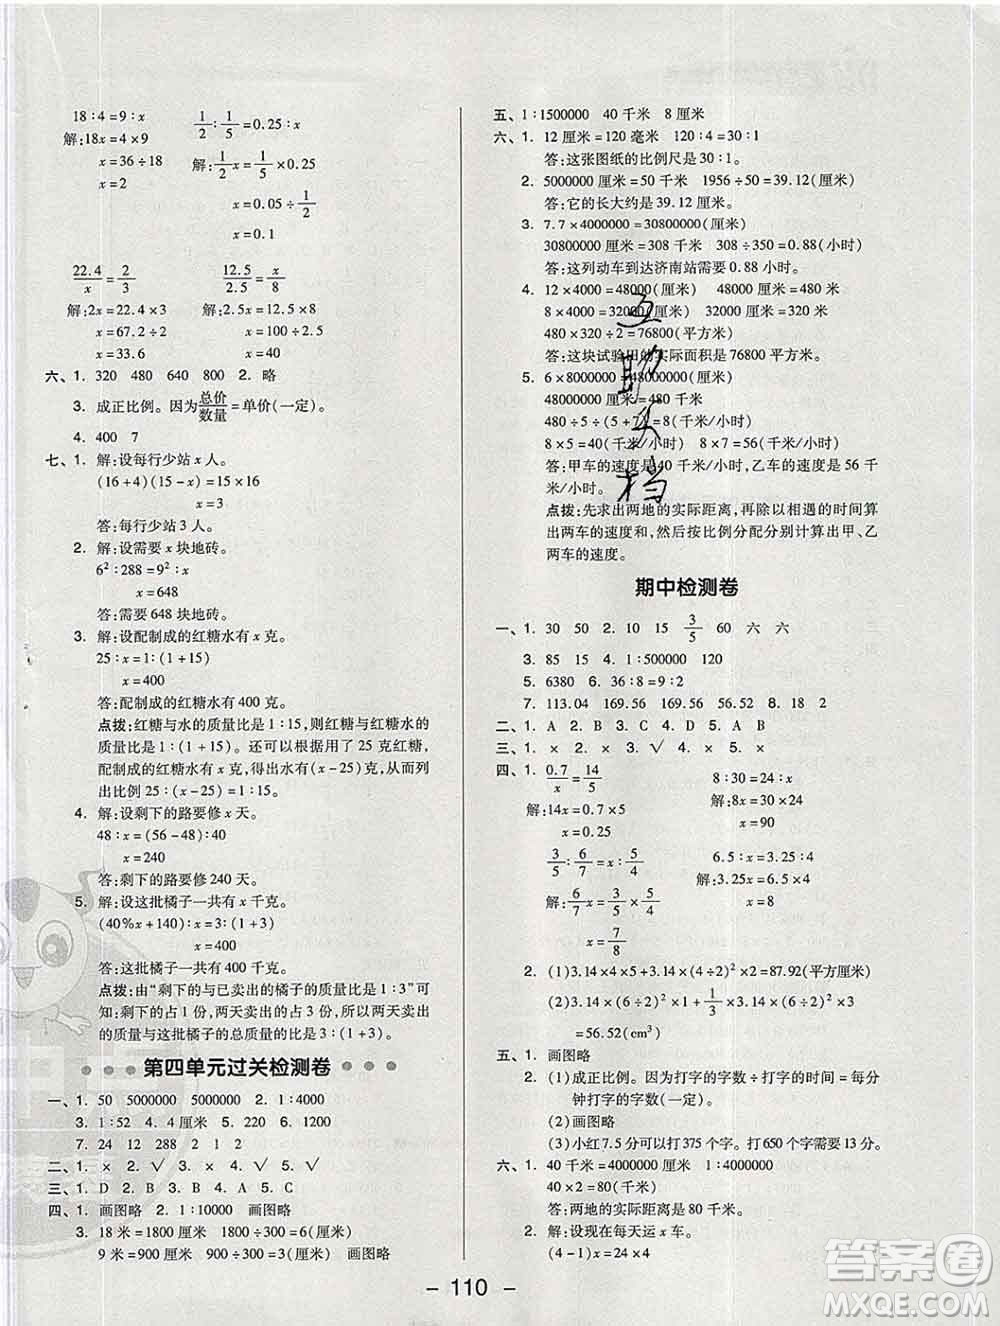 18∶4=9∶x
解:18x=4×9
x=36÷18
x=2
1/2∶1/5=0.25∶x
解:1/2x=1/5×0.25
x=0.05÷1/2
x=0.1
22.4/x=2/3
解:2x=22.4×3
x=67.2÷2
x=33.6
12.5/2.5=x/8
解:2.5x=12.5×8
x=100÷2.5
x=40
六、1. 320 480 640 800 2. 略
3. 成正比例。因为总价/数量=单价(一定)。
4. 400 7
七、1. 解:设每行少站x人。
(16+4)(15-x)=15×16
x=3
答:每行少站3人。
2. 解:设需要x块地砖。
6²∶288=9²∶x
x=648
答:需要648块地砖。
3. 解:设配制成的红糖水有x克。
25∶x=1∶(1+15)
x=400
答:配制成的红糖水有400克。
点拨:红糖与水的质量比是1∶15,则红糖与红糖水的
质量比是1∶(1+15)。还可以根据用了25克红糖,
配制成的红糖水有x克,得出水有(x-25)克,从而列
出比例25∶(x-25)=1∶15。
4. 解:设剩下的路要修x天。
48∶x=(56-48)∶40
x=240
答:剩下的路要修240天。
5. 解:设这批橘子一共有x千克。
(40%x+140)∶x=3∶(1+3)
x=400
答:这批橘子一共有400千克。
点拨:由“剩下的与已卖出的橘子的质量比是1∶3”可
知:剩下的占1份,两天卖出的占3份,所以两天卖出
的质量与这批橘子的总质量的比是3∶(1+3)。
第四单元过关检测卷
一、1. 50 5000000 5000000 2. 1∶4000
3. 1∶52 4. 4厘米 5. 220 6. 1200
7. 24 12 288 2 1 2
二、1. × 2. √ 3. × 4. √ 5. √
三、1. D 2. B 3. B 4. A 5. C
四、1. 画图略 2. 1∶10000 画图略
3. 18米=1800厘米 1800÷300=6(厘米)
9米=900厘米 900÷300=3(厘米) 画图略
五、1∶1500000 40千米 8厘米
六、1. 12厘米=120毫米 120∶4=30∶1
答:这张图纸的比例尺是30∶1。
2. 5000000厘米=50千米 1956÷50=39.12(厘米)
答:它的长大约是39.12厘米。
3. 7.7×4000000=30800000(厘米)
30800000厘米=308千米 308÷350=0.88(小时)
答:这列动车到达济南站需要0.88小时。
4. 12×4000=48000(厘米) 48000厘米=480米
8×4000=32000(厘米) 32000厘米=320米
480×320÷2=76800(平方米)
答:这块试验田的实际面积是76800平方米。
5. 6×8000000=48000000(厘米)
48000000厘米=480千米
480÷5÷(5+7)=8(千米/小时)
8×5=40(千米/小时) 8×7=56(千米/小时)
答:甲车的速度是40千米/小时,乙车的速度是56千
米/小时。
点拨:先求出两地的实际距离,再除以相遇的时间算
出两车的速度和,然后按比例分配分别计算出甲、乙
两车的速度。
期中检测卷
一、1. 30 50 2. 10 15 3/5 60 六 六
3. 85 15 4. 1∶500000 120
5. 6380 6. 36∶8=9∶2
7. 113.04 169.56 169.56 56.52 8. 18 2
二、1. A 2. B 3. C 4. D 5. A B
三、1. × 2. × 3. √ 4. × 5. ×
四、1. 0.7/x=14/5
解:14x=0.7×5
x=0.25
8∶30=24∶x
解:8x=30×24
x=90
3/5∶6/7=x∶5/4
解:6/7x=3/5×5/4
x=7/8
6.5∶x=3.25∶4
解:3.25x=6.5×4
x=8
2. (1)3.14×4×5+3.14×(4÷2)²×2=87.92(平方厘米)
(2)3.14×(6÷2)²×1+1/3×3.14×(6÷2)²×3
=56.52(cm³)
五、1. 画图略
2. (1)成正比例。因为打字的字数÷打字的时间=每分
钟打字的字数(一定)。
(2)画图略
(3)小红7.5分可以打375个字。打650个字需要13分。
六、1. 40千米=4000000厘米 1∶4000000
40×2=80(千米)
答:两地的实际距离是80千米。
2. 解:设现在每天运x车。
(4-1)x=24×4
- 110 -
互联文档
答案圈
MXQE.COM